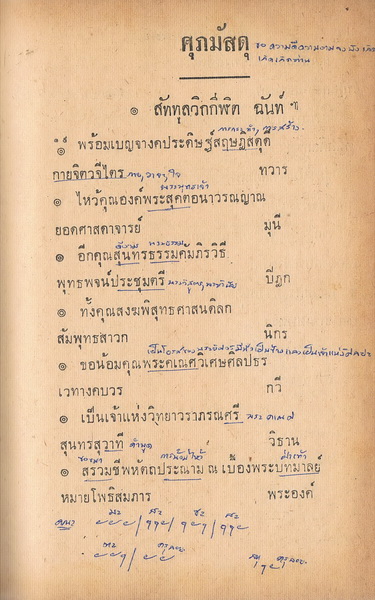 ศุภมัสดุ
ขอความดีความงามจงมี
๏ สัททุลวิกกีฬิต ฉันท์ ๚
การกระทำ, การสร้าง.
๏ พร้อมเบญจางคประดิษฐ์สฤษฎิสดุดี
กายจิตวจีไตร กาย, วาจา, ใจ ทวาร
พระพุทธเจ้า
๏ ไหว้คุณองค์พระสุคตอนาวรณญาณ
ยอดศาสดาจารย์ มุนี
พระธรรม
๏ อีกคุณสุนทรธรรมคัมภิรวิธี
พุทธพจน์ประชุมตรี ปีฎก
๏ ทั้งคุณสงฆพิสุทธศาสนดิลก
สัมพุทธสาวก นิกร
๏ ขอน้อมคุณพระคเณศวิเศษศิลปธร
เวทางคบวร กวี
๏ เป็นเจ้าแห่งวิทยาวราภรณศรี
สุนทรสุวาที คำพูด วิธาน
การน้อมไหว้ ฝ่าเท้า
๏ สรวมชีพหัตถประณาม ณ เบื้องพระบทมาลย์
หมายโพธิสมภาร พระองค์